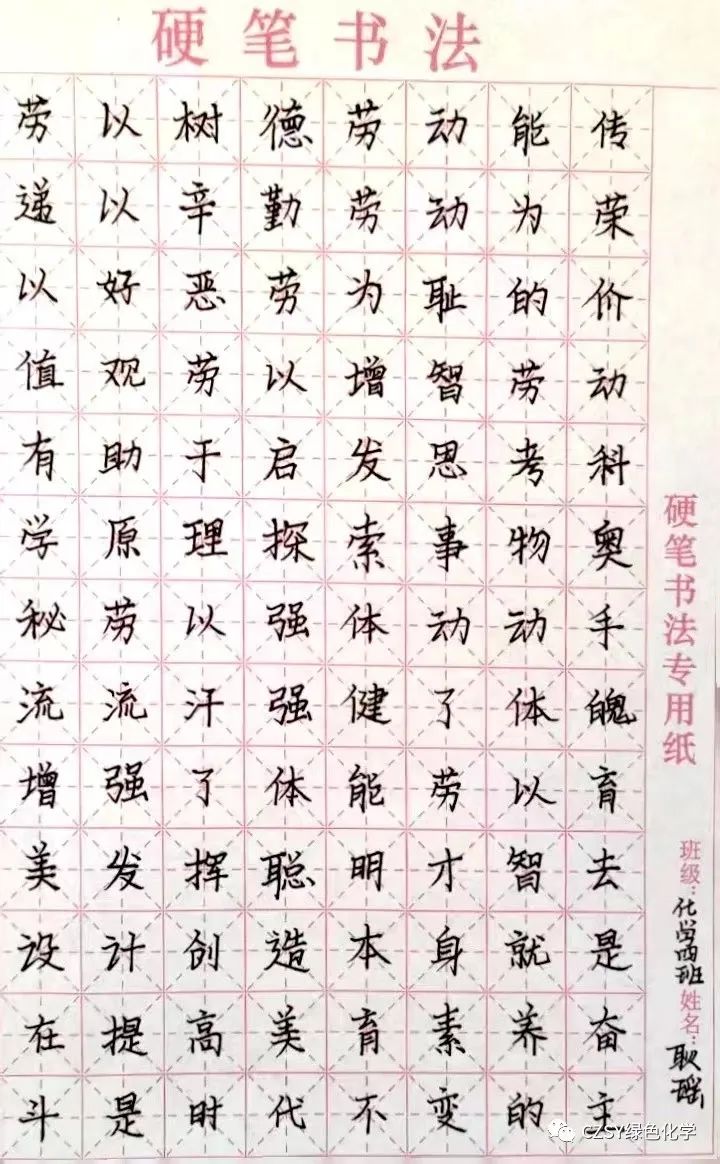 硬笔书法
劳以树德劳动能传
递以辛勤劳动为荣
以好恶劳为耻的价
值观劳以增智劳动
有助于启发思考科
学原理探索事物奥
秘劳以强体动动手
流流汗强健了体魄
增强了体能劳以育
美发挥聪明才智去
设计创造本身就是
在提高美育素养奋
斗是时代不变的主
硬笔书法专用纸
班级：化学四班 姓名：耿瑶
CZSY绿色化学